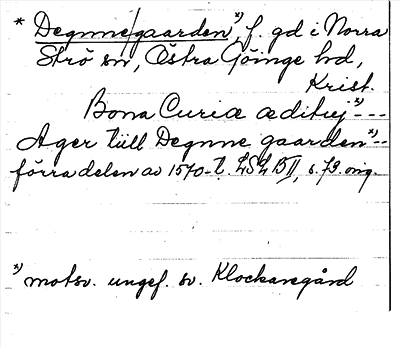 * Degnne/gaarden *), f. gd i Norra
Strö sn, Östra Göinge hd,
Krist.
Bona Curiæ ædituj *) ---
Ager tiill Degnne gaarden *) --
förra delen av 1570-t. LSL B II, s. 79. orig.
*) motsv. ungef. sv. Klockaregård